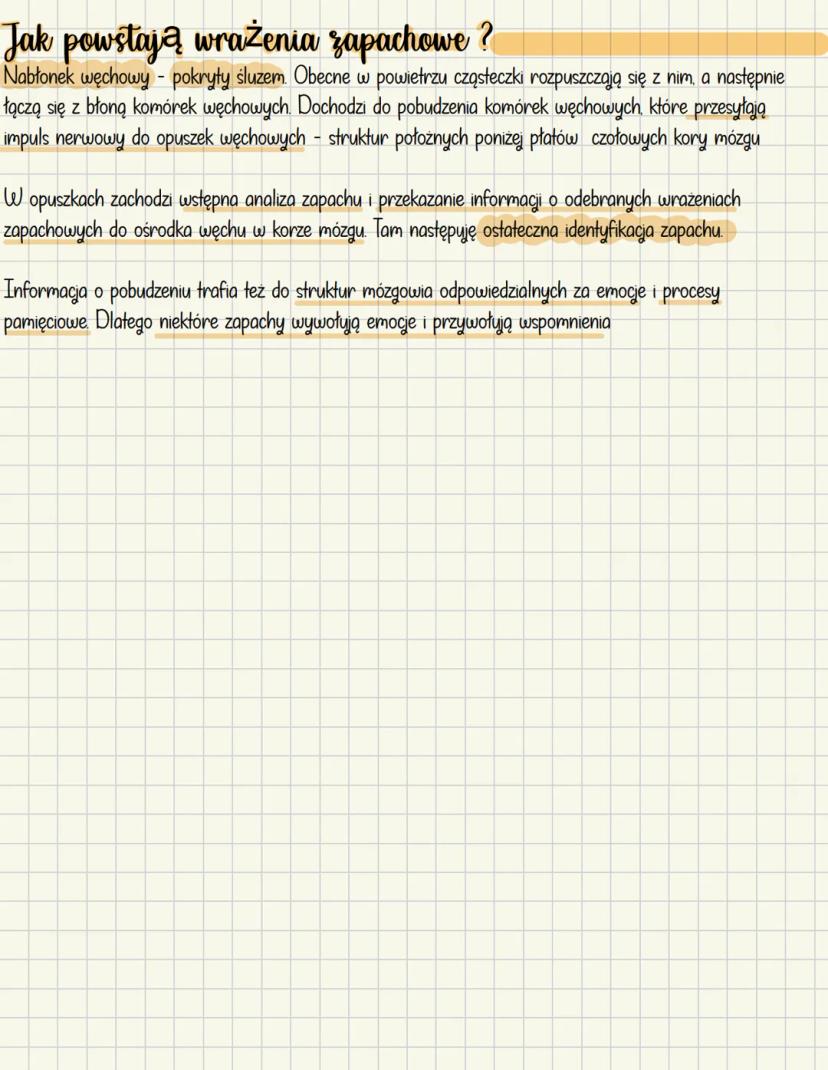 Jak powstają wrażenia zapachowe ?
Nabłonek węchowy - pokryty śluzem. Obecne w powietrzu cząsteczki rozpuszczają się z nim, a następnie
łączą się z błoną komórek węchowych. Dochodzi do pobudzenia komórek węchowych, które przesyłają
impuls nerwowy do opuszek węchowych - struktur położnych poniżej płatów czołowych kory mózgu
W opuszkach zachodzi wstępna analiza zapachu i przekazanie informacji o odebranych wrażeniach
zapachowych do ośrodka węchu w korze mózgu. Tam następuję ostateczna identyfikacja zapachu.
Informacja o pobudzeniu trafia też do struktur mózgowia odpowiedzialnych za emocje i procesy
pamięciowe. Dlatego niektóre zapachy wywołują emocje i przywołują wspomnienia